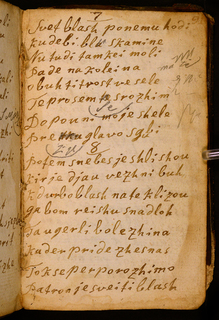 7
Svet blash ponemu hodi
kadebi blu skamine
Nu tudi tamkei moli
pade na koleina
obuhti trost vesele
Je prosem te srozhim
Dopouni moje shele
pre glavo sgli
8
potem snebes je shlishou
kir je djau vezhni buh
kdurbo blash nate klizou
ga bom reishu snadloh
Saugerli bolezhina
kader pride zhesnas
Tokseperporozhimo
patron je sveiti blash